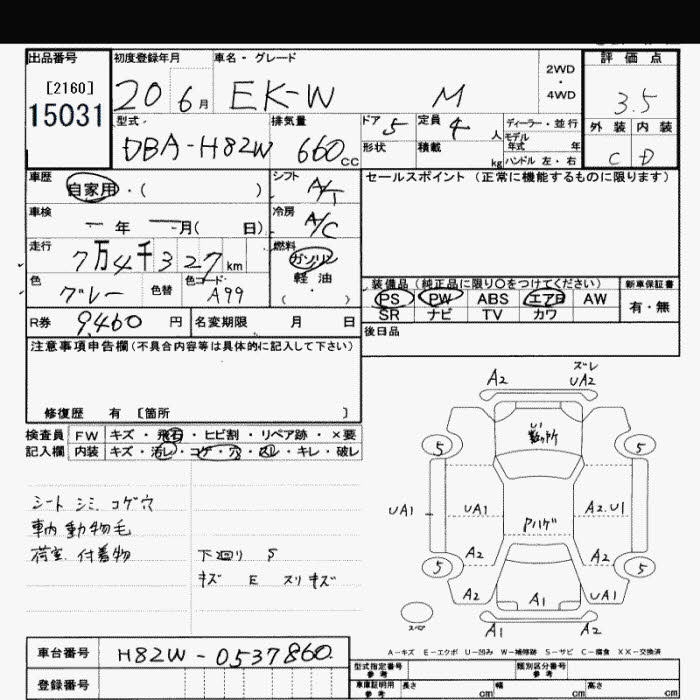 出品番号 初度登録年月 車名・グレード 評価点
[2160]
15031
20 6月 EK-W M 2WD・4WD 3.5
型式 排気量 ドア 5 定員 4人 ディーラー・並行 外装 内装
DBA-H82W 660cc 形状 積載 kg モデル年式 年 ハンドル 左・右 C D
車歴 自家用・( ) シフト A/T セールスポイント(正常に機能するものに限ります)
車検 ー年 ー月( 日) 冷房 A/C
走行 7万4千327km 燃料 ガソリン
軽油
( ・ )
色 グレー 色替 色コード A99
装備品(純正品に限り〇をつけてください) 新車保証書
PS PW ABS エアB AW 有・無
SR ナビ TV カワ
R券 9,460円 名変期限 月 日
後日品
注意事項申告欄(不具合内容等は具体的に記入して下さい)
修復歴 有 [箇所 ]
検査員 FW キズ・飛石・ヒビ割・リペア跡・×要
記入欄 内装 キズ・汚レ・コゲ・穴・スレ・キレ・破レ
シート シミ コゲ穴
車内 動物毛
荷室 付着物
下廻り S
キズ E スリキズ
ズレ
A2 UA2
U1
5 5
UA1 UA1 A2.U1
Pハゲ
A2 A2
5 5
A2 A1 UA1
スペア A1 A2
A-キズ E-エクボ U-凹み W-補修跡 S-サビ C-腐食 XX-交換済
車台番号 H82W-0537860
登録番号
型式指定番号 参考 類別区分番号 参考
車庫証明用 参考 長さ cm 幅 cm 高さ cm